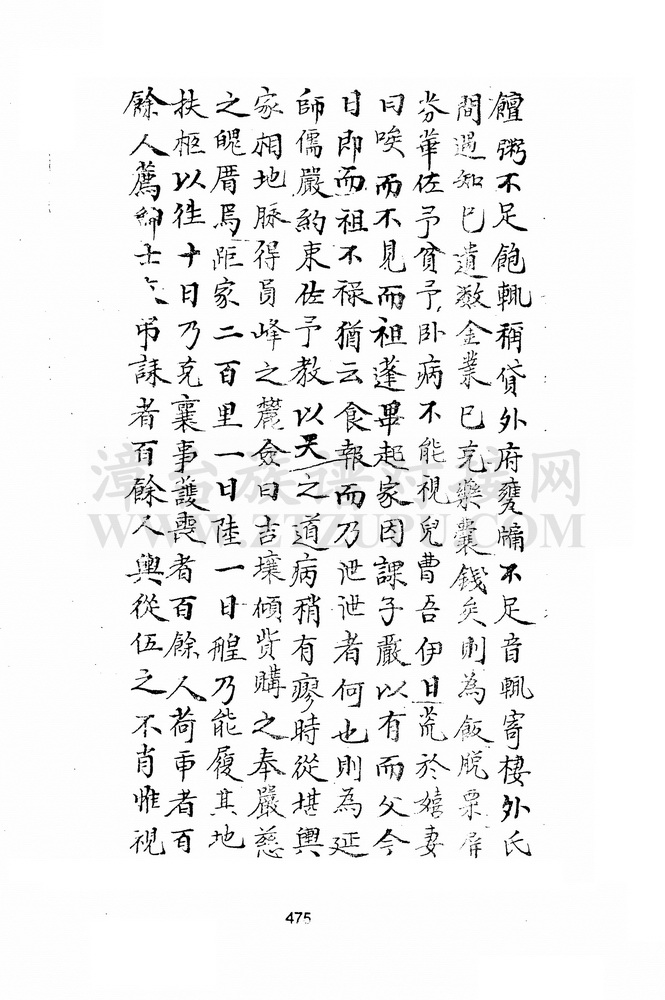 饘粥不足飽輒稱貸外府甕牖不足音輒寄棲外氏
間遇知巳遺数金業巳充藥囊錢矣則為飯脫粟屏
芬華佐予貧予卧病不能視兒曹吾伊日荒於嬉妻
曰唉而不見而祖蓬蓽起家因課子嚴以有而父今
日即而祖不祿猶云食報而乃泄泄者何也則為延
師儒嚴約束佐予教以天之道病稍有廖時從堪輿
家相地脉得員峰之麓僉曰吉壤傾貲購之奉嚴慈
之魄厝焉距家二百里一日陸一日艎乃能履其地
扶柩以徃十日乃克襄事護喪者百餘人荷帀者百
餘人薦紳士人弔誄者百餘人輿從伍之不肖惟視
475
漳台族譜对接网
WWW.ZTZUPU.COM